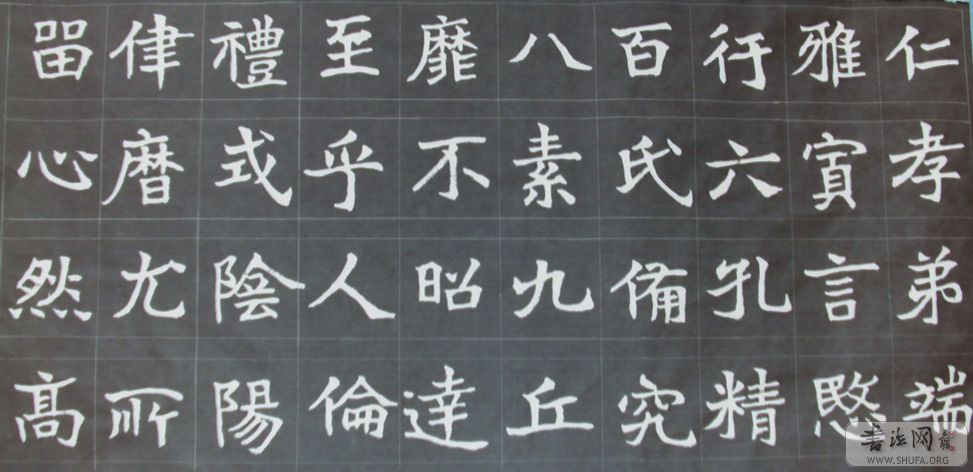 仁孝弟端
雅寡言慜
行六孔精
百氏俻究
八素九丘
靡不昭達
至乎人倫
禮式陰陽
律曆尤所
留心然髙
書法网
WWW.SHUFA.ORG